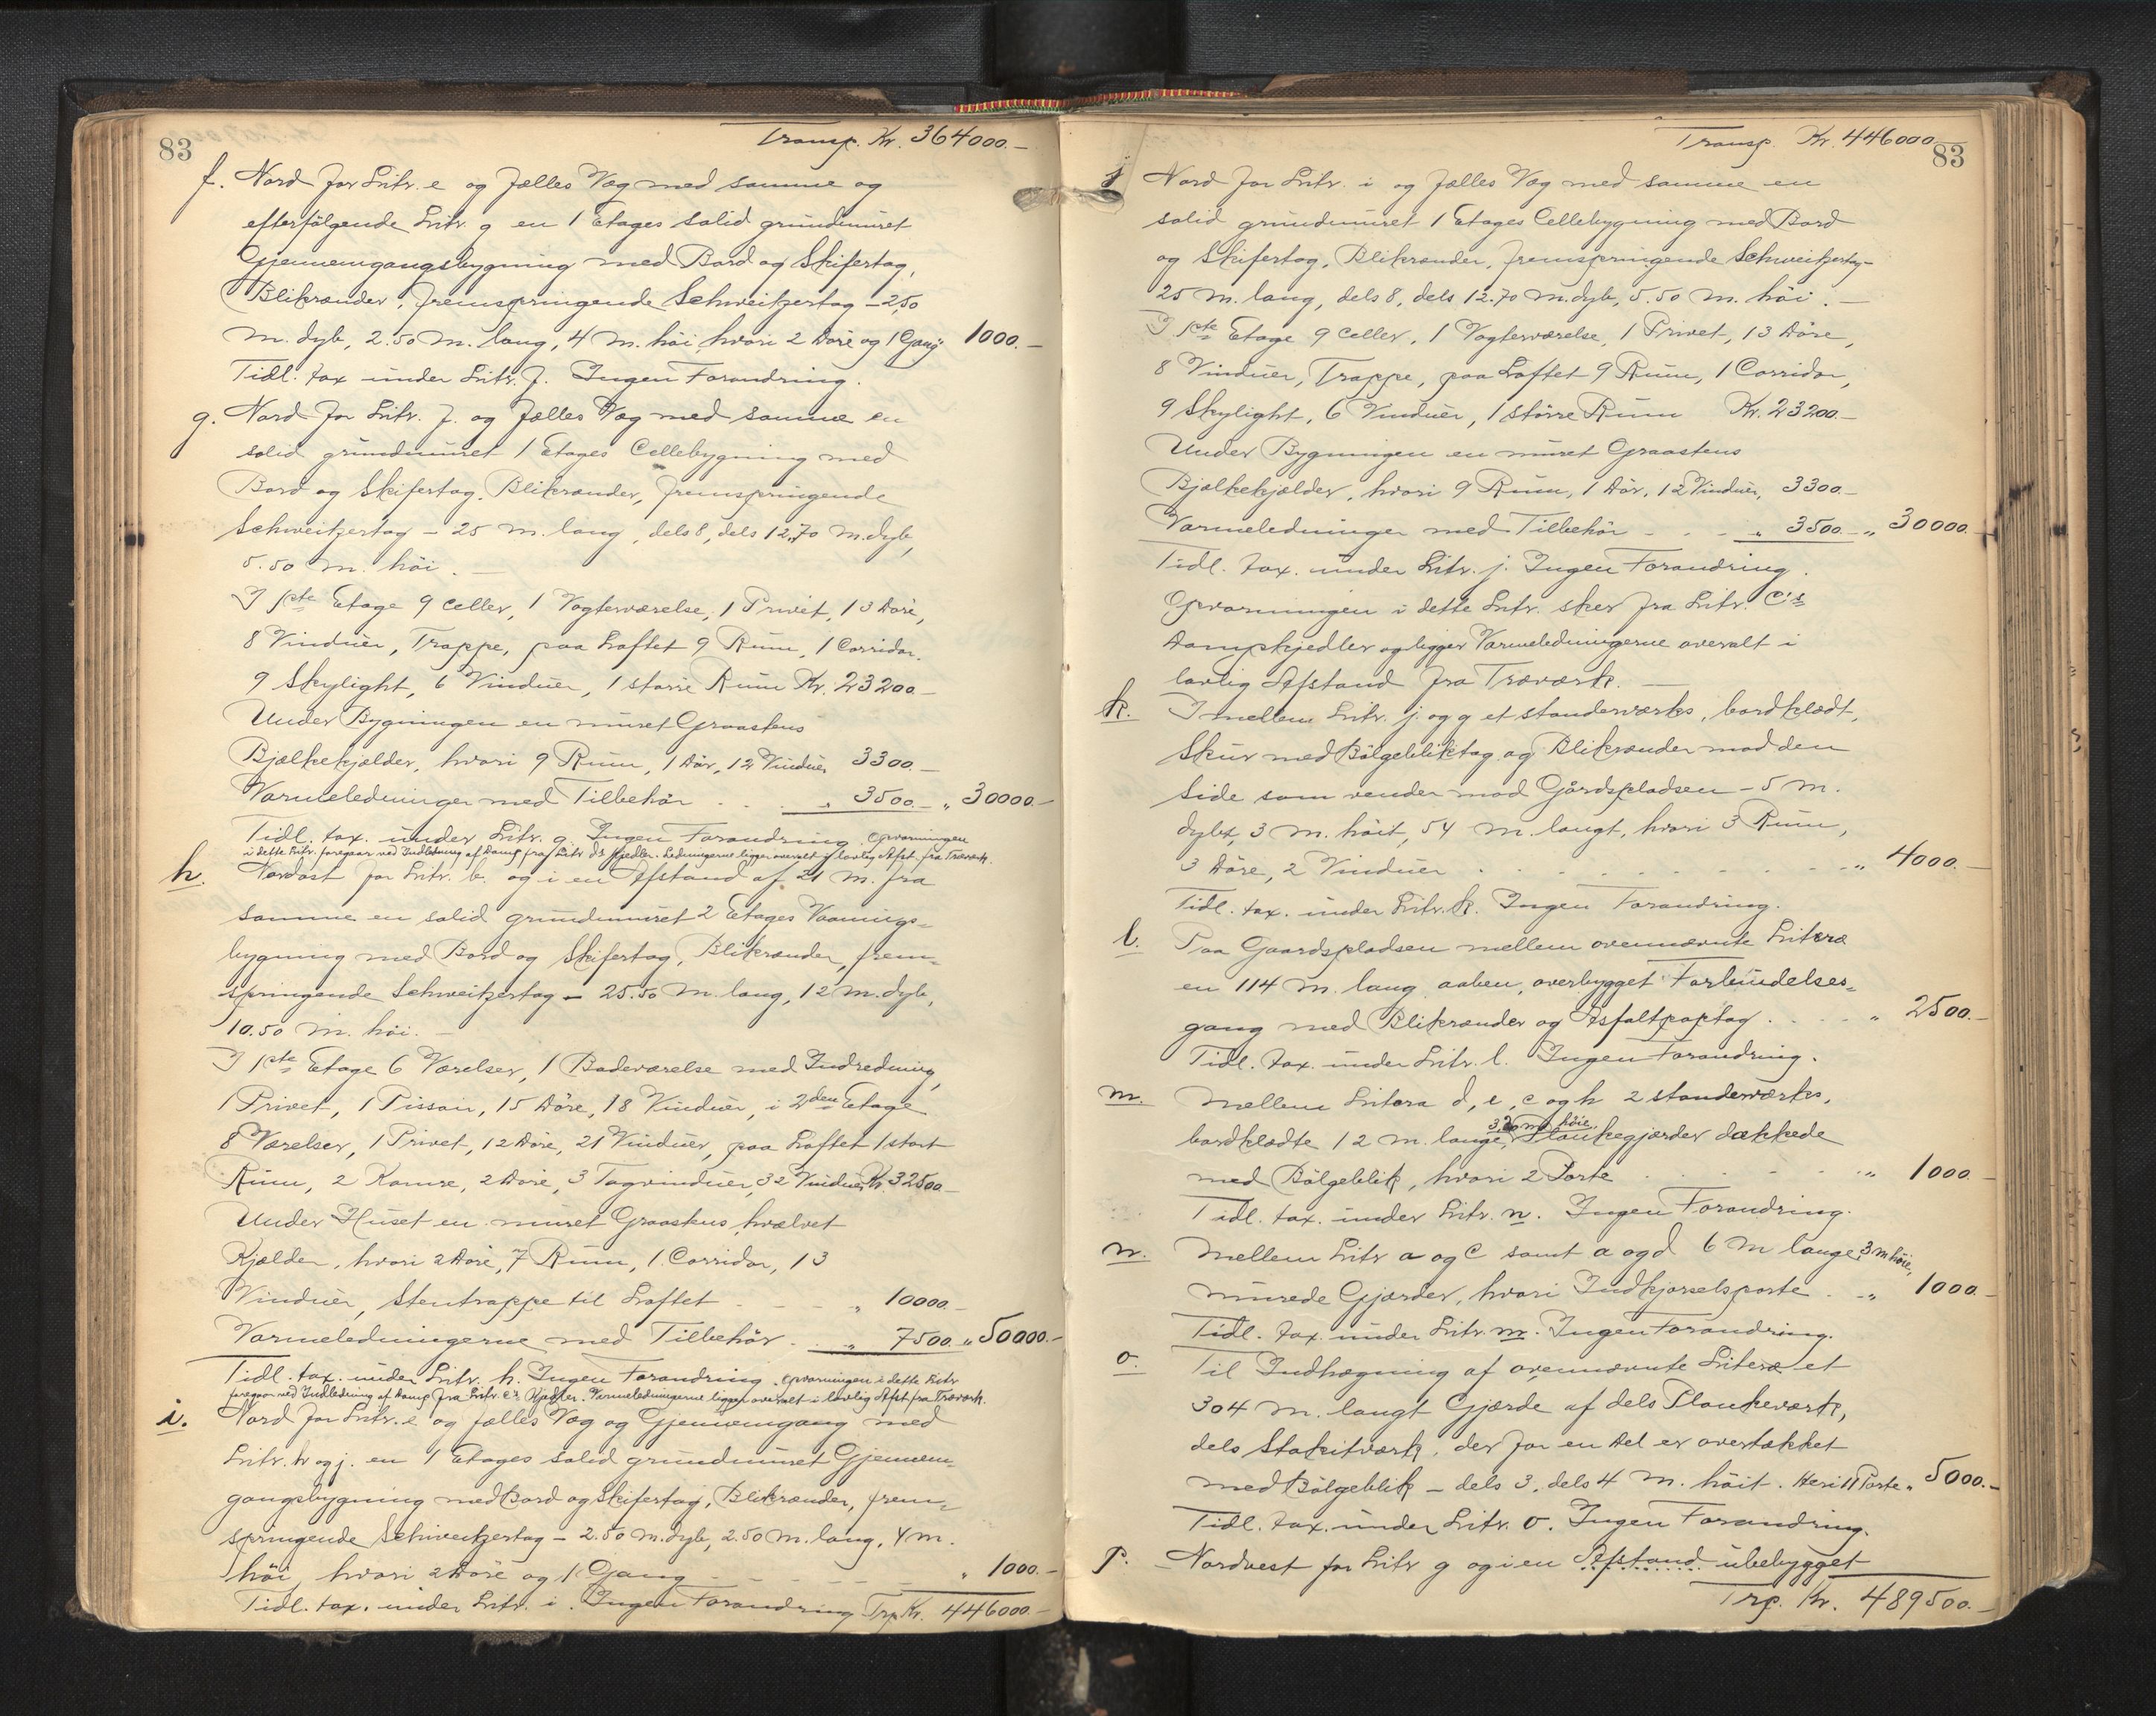 83
Transp. Kr. 364000.-
f. Nord for Litr. e og fælles Væg med samme og
efterfølgende Litr. g en 1 Etages solid grundmuret
Gjennemgangsbygning med Bord og Skifertag,
Blikrænder, fremspringende Schweitzertag - 2,50
m. dyb, 2.50 m. lang, 4 m. höi, hvori 2 Döre og 1 Gang 1000.-
Tidl. tax under Litr. f. Ingen Forandring.
g. Nord for Litr. f. og fælles Væg med samme en
solid grundmuret 1 Etages Cellebygning med
Bord og Skifertag, Blikrænder, fremspringende
Schweitzertag - 25 m. lang, dels 8, dels 12,70 m. dyb,
5.50 m. höi. -
I 1ste Etage 9 Celler, 1 Vogterværelse, 1 Privet, 13 Döre,
8 Vinduer, Trappe, paa Loftet 9 Rum, 1 Corridor,
9 Skylight, 6 Vinduer, 1 större Rum Kr. 23200.-
Under Bygningen en muret Graastens
Bjælkekjælder, hvori 9 Rum, 1 Dör, 12 Vinduer 3300.-
Varmeledninger med Tilbehör . . . „ 3500.- „ 30000.-
Tidl. tax. under Litr. g. Ingen Forandring. Opvarmningen
i dette Litr. foregaar ved Indledning af Damp fra Litr d's Kjedler. Ledningerne ligger overalt i lovlig Afst. fra Træværk.
h. Nordost for Litr. b. og i en Afstand af 21 m. fra
samme en solid grundmuret 2 Etages Vaanings-
bygning med Bord og Skifertag, Blikrænder, frem-
springende Schweitzertag - 25.50 m. lang, 12 m. dyb,
10.50 m. höi. -
I 1ste Etage 6 Værelser, 1 Badeværelse med Indredning,
1 Privet, 1 Pissoir, 15 Döre, 18 Vinduer, i 2den Etage
8 Værelser, 1 Privet, 12 Döre, 21 Vinduer, paa Loftet 1 stort
Rum, 2 Kamre, 2 Döre, 3 Tagvinduer, 32 Vinduer Kr. 32500.-
Under Huset en muret Graastens hvælvet
Kjælder, hvori 2 Döre, 7 Rum, 1 Corridor, 13
Vinduer, Stentrappe til Loftet . . . „ 10000.-
Varmeledningerne med Tilbehör . . „ 7500. „ 50000.-
Tidl. tax. under Litr. h. Ingen Forandring. Opvarmningen i dette Litr
foregaar ved Indledning af Damp fra Litr. c's Kjedler. Varmeledningerne ligger overalt i lovlig Afst. fra Træværk.
i. Nord for Litr. e og fælles Væg og Gjennemgang med
Litr. h og j. en 1 Etages solid grundmuret Gjennem-
gangsbygning med Bord og Skifertag, Blikrænder, frem-
springende Schweitzertag - 2.50 m. dyb, 2.50 m. lang, 4 m.
höi, hvori 2 Döre og 1 Gang . . . „ 1000.-
Tidl. tax. under Litr. i. Ingen Forandring Trp. Kr. 446000.-
Transp. Kr. 446000.
83
j Nord for Litr. i og fælles Væg med samme en
solid grundmuret 1 Etages Cellebygning med Bord
og Skifertag, Blikrænder, fremspringende Schweitzertag-
25 m. lang, dels 8, dels 12.70 m. dyb, 5.50 m. höi. -
I 1ste Etage 9 Celler, 1 Vogterværelse, 1 Privet, 13 Döre,
8 Vinduer, Trappe, paa Loftet 9 Rum, 1 Corridor,
9 Skylight, 6 Vinduer, 1 större Rum Kr. 23200.-
Under Bygningen en muret Graastens
Bjælkekjælder, hvori 9 Rum, 1 Dör, 12 Vinduer, 3300.-
Varmeledninger med Tilbehör - . - „ 3500.- „ 30000.-
Tidl. tax. under Litr. j. Ingen Forandring.
Opvarmningen i dette Litr. sker fra Litr. C's
Dampkjedler og ligger Varmeledningerne overalt i
lovlig Afstand fra Træværk. -
k. Imellem Litr. j. og g et standerværks, bordklædt,
Skur med Bölgebliktag og Blikrænder mod den
Side som vender mod Gårdspladsen - 5 m.
dybt, 3 m. höit, 54 m. langt, hvori 3 Rum,
3 Döre, 2 Vinduer . . . „ 4000.-
Tidl. tax. under Litr. k. Ingen Forandring.
l. Paa Gaardspladsen mellem ovennævnte Literæ
en 114 m. lang aaben, overbygget Forbindelses-
gang med Blikrænder og Asfaltpaptag . . . „ 2500.-
Tidl. tax. under Litr. l. Ingen Forandring.
m. Mellem Litera d, e, c og h 2 standerværks,
3,20 m. höie,
bordklædte 12 m. lange, Plankegjærder dækkede
med Bölgeblik, hvori 2 Porte . . . „ 1000.-
Tidl. tax. under Litr. n. Ingen Forandring.
n. Mellem Litr a og C samt a og d 6 m lange, 3 m höie,
murede Gjærder, hvori Indkjørselsporte . - „ 1000.-
Tidl. tax. under Litr. m. Ingen Forandring.
o. Til Indhægning af ovennævnte Literæ et
304 m. langt Gjærde af dels Plankeværk,
dels Stakitværk, der for en Del er overtækket
med Bölgeblik - dels 3, dels 4 m. höit. Heri 11 Porte „ 5000.-
Tidl. tax. under Litr. o. Ingen Forandring.
p. Nordvest for Litr g og i en Afstand ubebygget
Trp. Kr. 489500.-